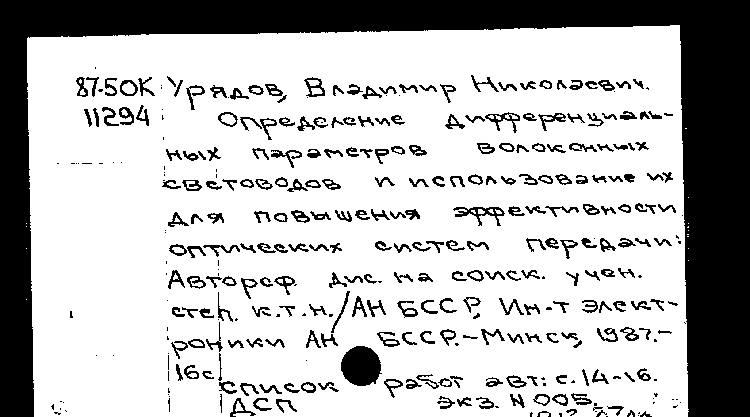 87-5ОК Урядов, Владимир Николаевич.
11294 Определение дифференциаль-
ных параметров волоконных
световодов и использование их
для повышения эффективности
оптических систем передачи:
Автореф. дис. на соиск. учен.
степ. к.т.н./АН БССР, Ин-т элект-
роники АН БССР.-Минск, 1987.-
16с.
список работ авт: с.14-16.
ДСП экз. N 005.